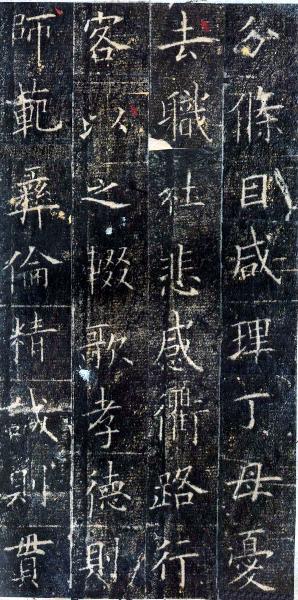 分條目咸理丁母憂
去職社悲感衢路行
客以之輟歌孝德則
師範彝倫精誠則貫